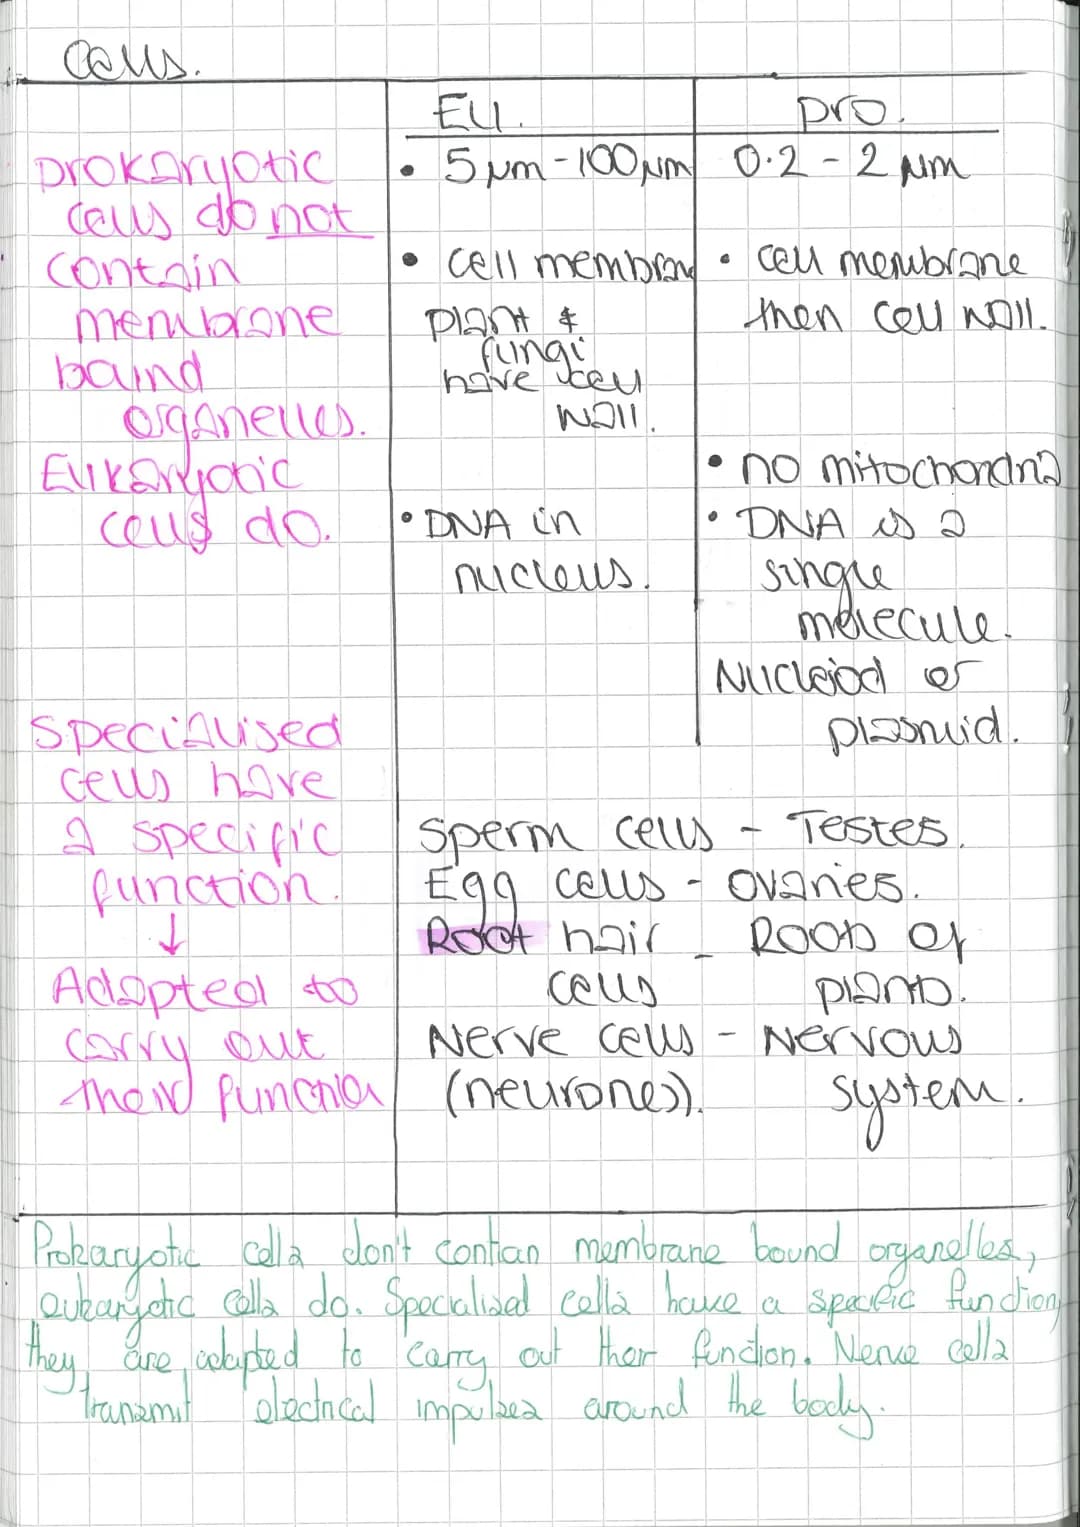 Cells.
Eu.
pro.
prokaryotic
cells do not
contain
membrane
baund
organelles.
Eukaryotic
cells do.
specialised
cells have
a specific
function.
↓
Adapted to
carry out
their function
• 5 µm - 100 µm
• cell membrane
plant &
fungi
have cell
wall.
• DNA in
nucleus.
0.2 - 2 µm
• cell membrane
then cell wall.
• no mitochondria
• DNA is a
single
molecule.
Nucleiod or
plasmid.
Sperm cells - Testes.
Egg cells - ovaries.
Root hair - Roots of
cells plants.
Nerve cells - Nervous
(neurones). system.
Prokaryotic cells don't contian membrane bound organelles,
eukaryotic cells do. Specialised cells have a specific function,
they are adapted to carry out their function. Nerve cells
transmit electrical impulses around the body.